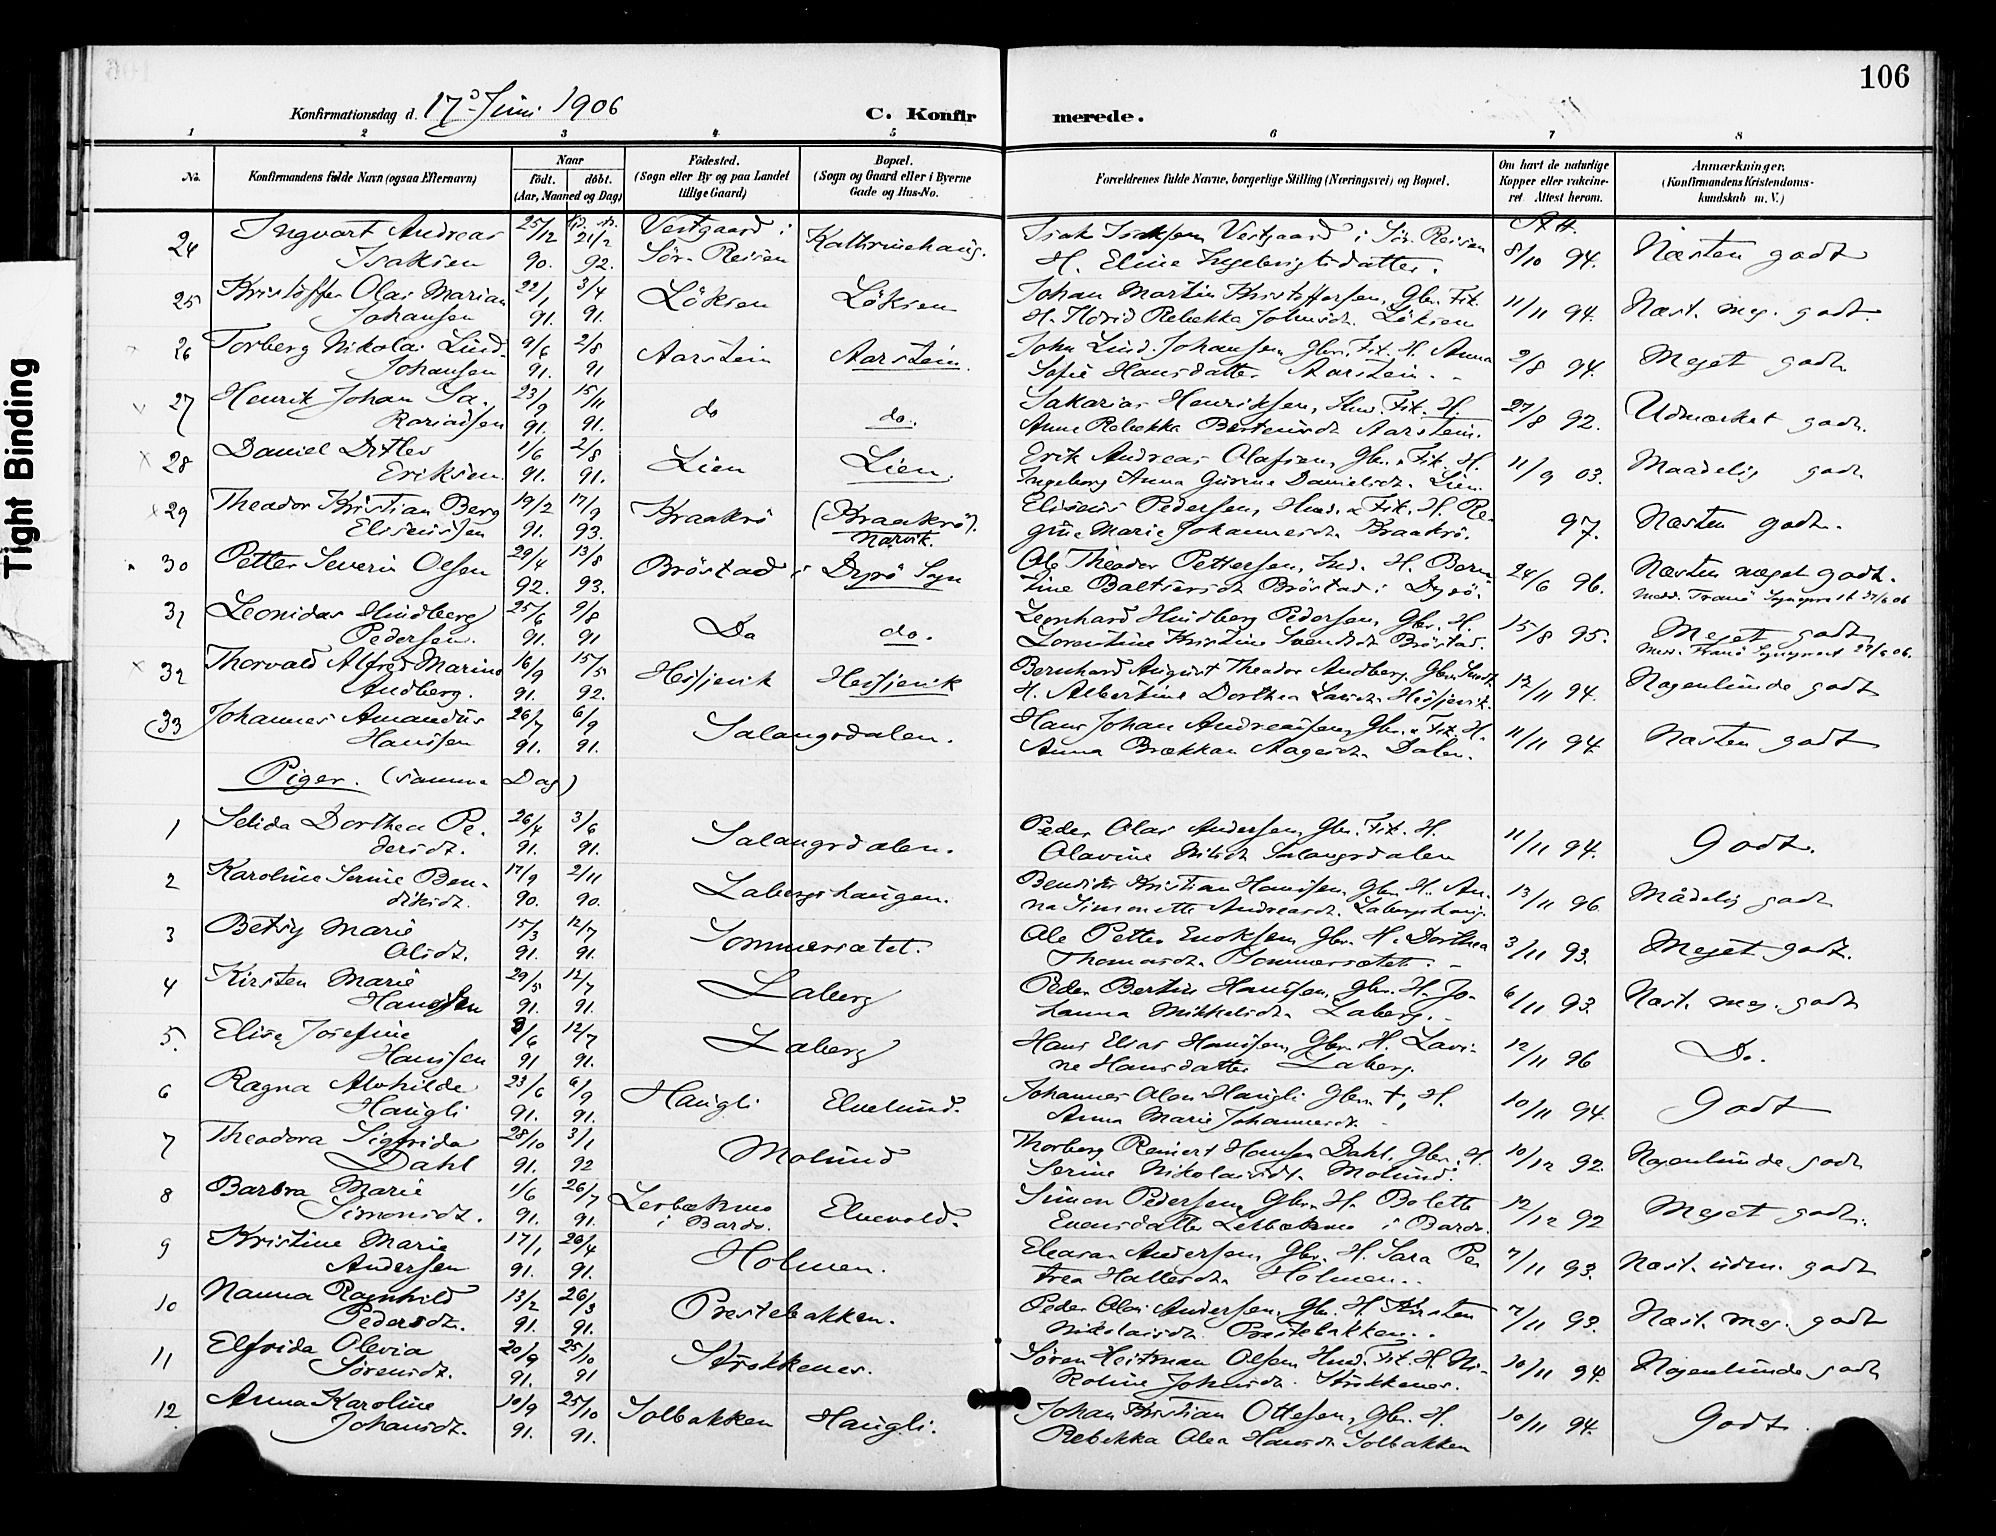 106
Konfirmationsdag d. 17de Juni 1906
C. Konfirmerede.
1 2 3 4 5 6 7 8
No. Konfirmandens fulde Navn (ogsaa Efternavn) Naar født. døbt. (Aar, Maaned og Dag) Födested. (Sogn eller By og paa Landet tillige Gaard) Bopæl. (Sogn og Gaard eller i Byerne Gade og Hus-No. Forældrenes fulde Navne, borgerlige Stilling (Næringsvei) og Bopæl. Om havt de naturlige Kopper eller vakcineret. Attest herom. Anmærkninger. (Konfirmandens Kristendomskundskab m. V.)
24 Ingvart Andreas 25/12 21/2 Vestgaard i Kathrinehaug. Isak Isaksen Vestgaard i Sör-Reisen Att.
Isaksen 90. 92. Sör-Reisen H. Eline Ingebrigtsdatter. 8/10 94. Næsten godt
25 Kristoffer Olai Marian 22/1 3/4 Löksen Löksen Johan Martin Kristoffersen, Gbr. Fik. 11/11 94. Næst. meg. godt.
Johansen 91. 91. Rebekka Johnsdt. Löksen
26 Torberg Nikolai Lind- 9/6 2/8 Aarstein Aarstein. John Lind-Johansen Gbr. Fik. H. Anna 2/8 94. Meget godt.
Johansen 91. 91 Sofie Hansdatter Aarstein.
27 Henrik Johan Sa- 23/9 15/11 do do. Sakarias Henriksen, Fik. H. 27/8 92. Udmærket godt.
kariassen 91. 91. Anne Rebekka Aarstein.
28 Daniel Ditlev 1/6 2/8 Lien Lien. Erik Andreas Olafsen, Gbr. Fik. H. 11/9 03. Maadelig godt
Eriksen 91. 91. Ingeborg Anna Danielsdt. Lien.
29 Theador Kristian Berg 19/2 17/9 Kraakrö (Kraakrö). Eliseus Pedersen, Husm. & Fik. H. Re- 97. Næsten godt.
Elisenssen 91. 93. Narvik. gine Marie Johannesdt. Kraakrö.
30 Petter Severin Olsen 29/4 13/8 Bröstad i Dyrö Sogn Ole Theador Pettersen, Ind. H. Bern- 24/6 96. Næsten meget godt.
92. 93. tine Baltsersdt. Bröstad i Dyrö. Medd. Tranö Sognepræst 27/6 06
31 Leonidas Hindberg 25/6 9/8 Do do. Leonhard Hindberg Pedersen, Gbr. H. 15/8 95. Meget godt
Pedersen. 91. 91 Lorentine Kristine Svendsdt. Bröstad. Med. Tranö Sognepræst 27/6 06.
32 Thorvald Alfred Marino 16/9 15/5 Hesjevik Hesjevik Bernhard August Theador Andberg, Gbr. 12/11 94. Nogenlunde godt
Andberg. 91. 92. H. Albertine Dorthea Hesjevik.
33 Johannes Amandus 26/7 6/9 Salangsdalen. Hans Johan Andreassen, Gbr. & Fik. H. 11/11 94. Næsten godt
Hanssen 91. 91. Anna Brækkan Aagesdt. Dalen.
Piger. (samme Dag)
1 Selida Dorthea Pe- 26/4 3/6 Salangsdalen. Peder Olai Andersen, Gbr. Fik. H. 11/11 94. Godt.
dersdt. 91. 91. Olavine Nilsdt. Salangsdalen
2 Karoline Serine Ben- 17/9 2/11 Labergshaugen. Bendik Kristian Hanssen, Gbr. H. An- 13/11 96 Mådelig godt
diksdt. 90. 90. na Simonette Andreasdt. Labergshaug.
3 Betsy Marie 15/3 12/7 Sommersætet. Ole Petter Enoksen, Gbr. H. Dorthea 3/11 93. Meget godt.
Olsdt. 91. 91. Thomasdt. Sommersætet.
4 Kirsten Marie 29/5 12/7 Laberg Peder Bertin Hanssen, Gbr. H. Jo- 6/11 93. Næst. meg. godt
Hanssen 91. 91. hanna Mikkelsdt. Laberg.
5. Elise Josefine 8/6 12/7 Laberg Hans Elias Hanssen, Gbr. H. Lavi- 12/11 96 Do.
Hanssen 91 91. ne Hansdatter Laberg.
6 Ragna Alvhilde 23/6 6/9 Haugli Elvelund. Johannes Olsen Haugli Gbr. †, H. 10/11 94. Godt
Haugli 91. 91. Anna Marie Johannesdt.
7 Theadora Sigfrida 28/10 3/1 Molund Thorberg Reinert Hansen Dahl, Gbr. H. 10/12 92. Nogenlunde godt
Dahl 91. 92 Serine Nikolaisdt. Molund.
8 Barbra Marie 1/6 26/7 Leibækmo Elvevold. Simon Pedersen, Gbr. H. Bolette 12/12 92 Meget godt.
Simonsdt. 91. 91. i Bardo. Evensdatter Leibækmo i Bardo.
9 Kristine Marie 17/1 26/4 Holmen. Eleasar Andersen, Gbr. H. Sara Pe- 7/11 93. Næst. udm. godt
Andersen 91. 91. trea Hallesdt. Holmen.
10 Nanna Ragnhild 13/2 26/3 Prestebakken. Peder Olai Andersen, Gbr. H. Kirsten 7/11 93. Næst. meg. godt
Pedersdt. 91. 91. Nikolaisdt. Prestebakken.
11 Elfrida Olevia 20/9 25/10 Strokkenes. Søren Heitman Olsen Husm. Fik. H. Ni- 10/11 94. Nogenlunde godt
Sørensdt. 91. 91 koline Johnsdt. Strokkenes.
12 Anna Karoline 10/9 25/10 Solbakken Haugli. Johan Kristian Ottesen, Gbr. H. 10/11 94. Godt.
Johansdt. 91. 91. Rebekka Olea Hansdt. Solbakken
Tight Binding